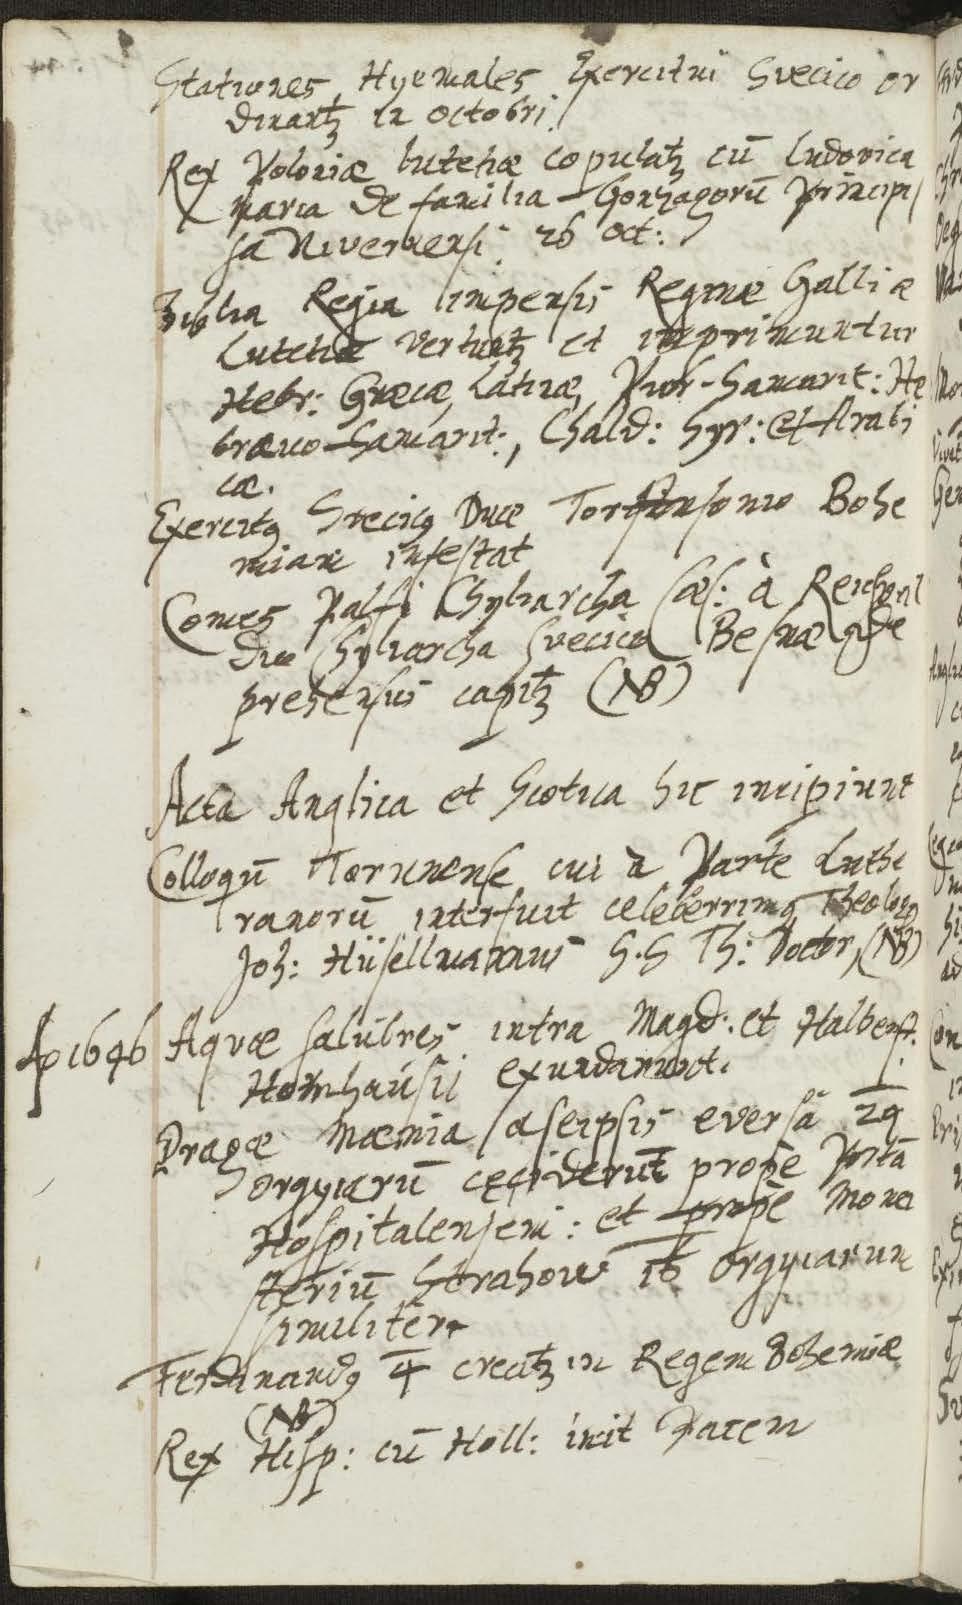 Stationes Hyemales Exercitui Svecico or
dinantꝫ in octobri.
Rex Poloniæ lutetiæ copulatꝫ cū Ludovica
Maria de familia Gonzagorū Principis
sa Nivernensi 26 oct:
Biblia Regia impensis Reginæ Galliæ
Lutetiæ vertuntꝫ et imprimuntur
Hebr: Græcæ, Latinæ, Samarit: He
bræico-Samarit:, Chald: Syr: et Arabi
cæ.
Exercitꝯ Svecicꝯ Duce Torstensonio Bohe
miam infestat
Comes Palfi Chyliarcha Cæs: à
duo Chyliarcha Svecico
prehensus capitꝫ (NB)
Acta Anglica et Scotica hic incipiunt
Colloqū Torunense cui à Parte Luthe
ranorū interfuit celeberrimꝯ Theologꝯ
Joh: Hüsellmannus S.S Th: Doctor, (NB)
Ao 1646 Aqvæ salubres intra Magd: et Halberst:
Hornhausii exundarunt.
Pragæ Mœnia a seipsis eversa 29
orgyiarū ceciderunt prope Portā
Hospitalensem: et prope Mona
steriū Strahow 16 orgyiarum
similiter
Ferdinandꝯ 4 creatꝫ in Regem Bohemiæ
(NB)
Rex Hisp: cū Holl: init Pacem